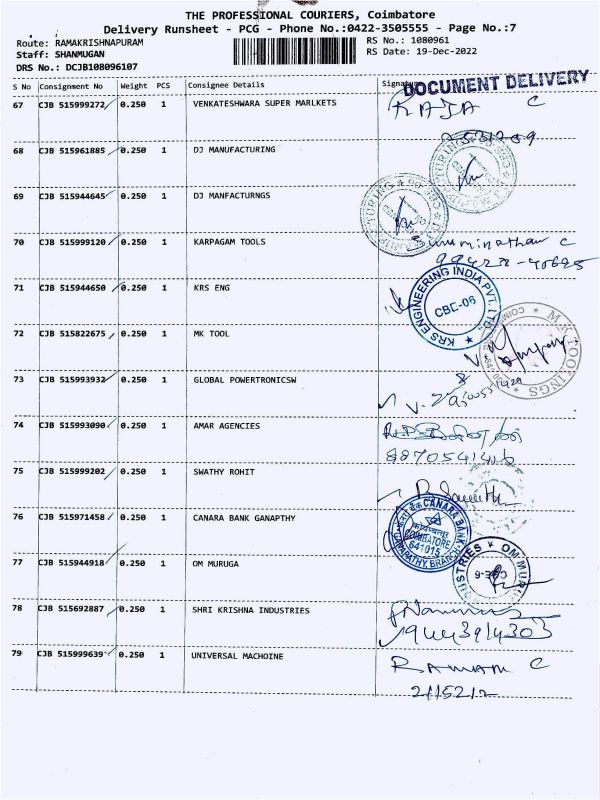 THE PROFESSIONAL COURIERS, Coimbatore
Delivery Runsheet - PCG - Phone No.:0422-3505555 - Page No.:7
Route: RAMAKRISHNAPURAM RS No.: 1080961
Staff: SHANMUGAN RS Date: 19-Dec-2022
DRS No.: DCJB108096107
DOCUMENT DELIVERY
S No Consignment No Weight PCS Consignee Details Signature
67 CJB 515999272 0.250 1 VENKATESHWARA SUPER MARLKETS RAJA C
68 CJB 515961885 0.250 1 DJ MANUFACTURING
69 CJB 515944645 0.250 1 DJ MANFACTURNGS
70 CJB 515999120 0.250 1 KARPAGAM TOOLS
71 CJB 515944650 0.250 1 KRS ENG
KRS ENGINEERING INDIA PVT. LTD.
CBE-06
72 CJB 515822675 0.250 1 MK TOOL
M.K TOOLINGS
73 CJB 515993932 0.250 1 GLOBAL POWERTRONICSW
74 CJB 515993090 0.250 1 AMAR AGENCIES
8870541416
75 CJB 515999202 0.250 1 SWATHY ROHIT
76 CJB 515971458 0.250 1 CANARA BANK GANAPTHY
CANARA BANK
COIMBATORE
641015
GANAPATHY BRANCH
77 CJB 515944918 0.250 1 OM MURUGA
78 CJB 515692887 0.250 1 SHRI KRISHNA INDUSTRIES
79 CJB 515999639 0.250 1 UNIVERSAL MACHOINE RAMAN C
2115212